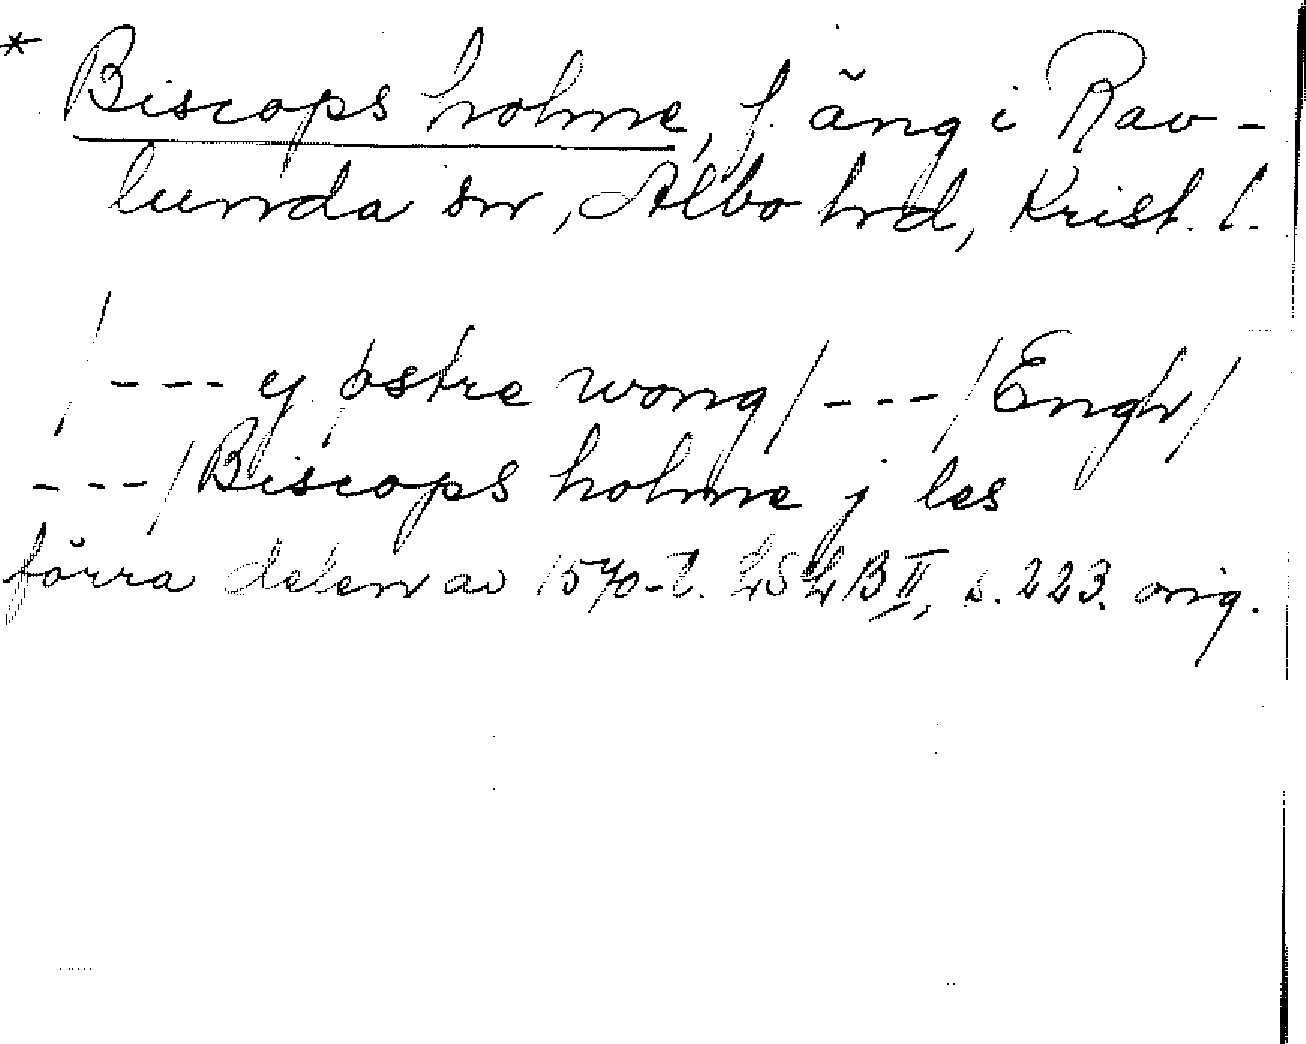 * Biscops holme, f. äng i Rav-
lunda sn, Albo hrd, Krist. l.
/--- ej østre wong/---/Engh/
---/Biscops holme j les
förra delen av 1570-t. LSLB II, s. 223. orig.